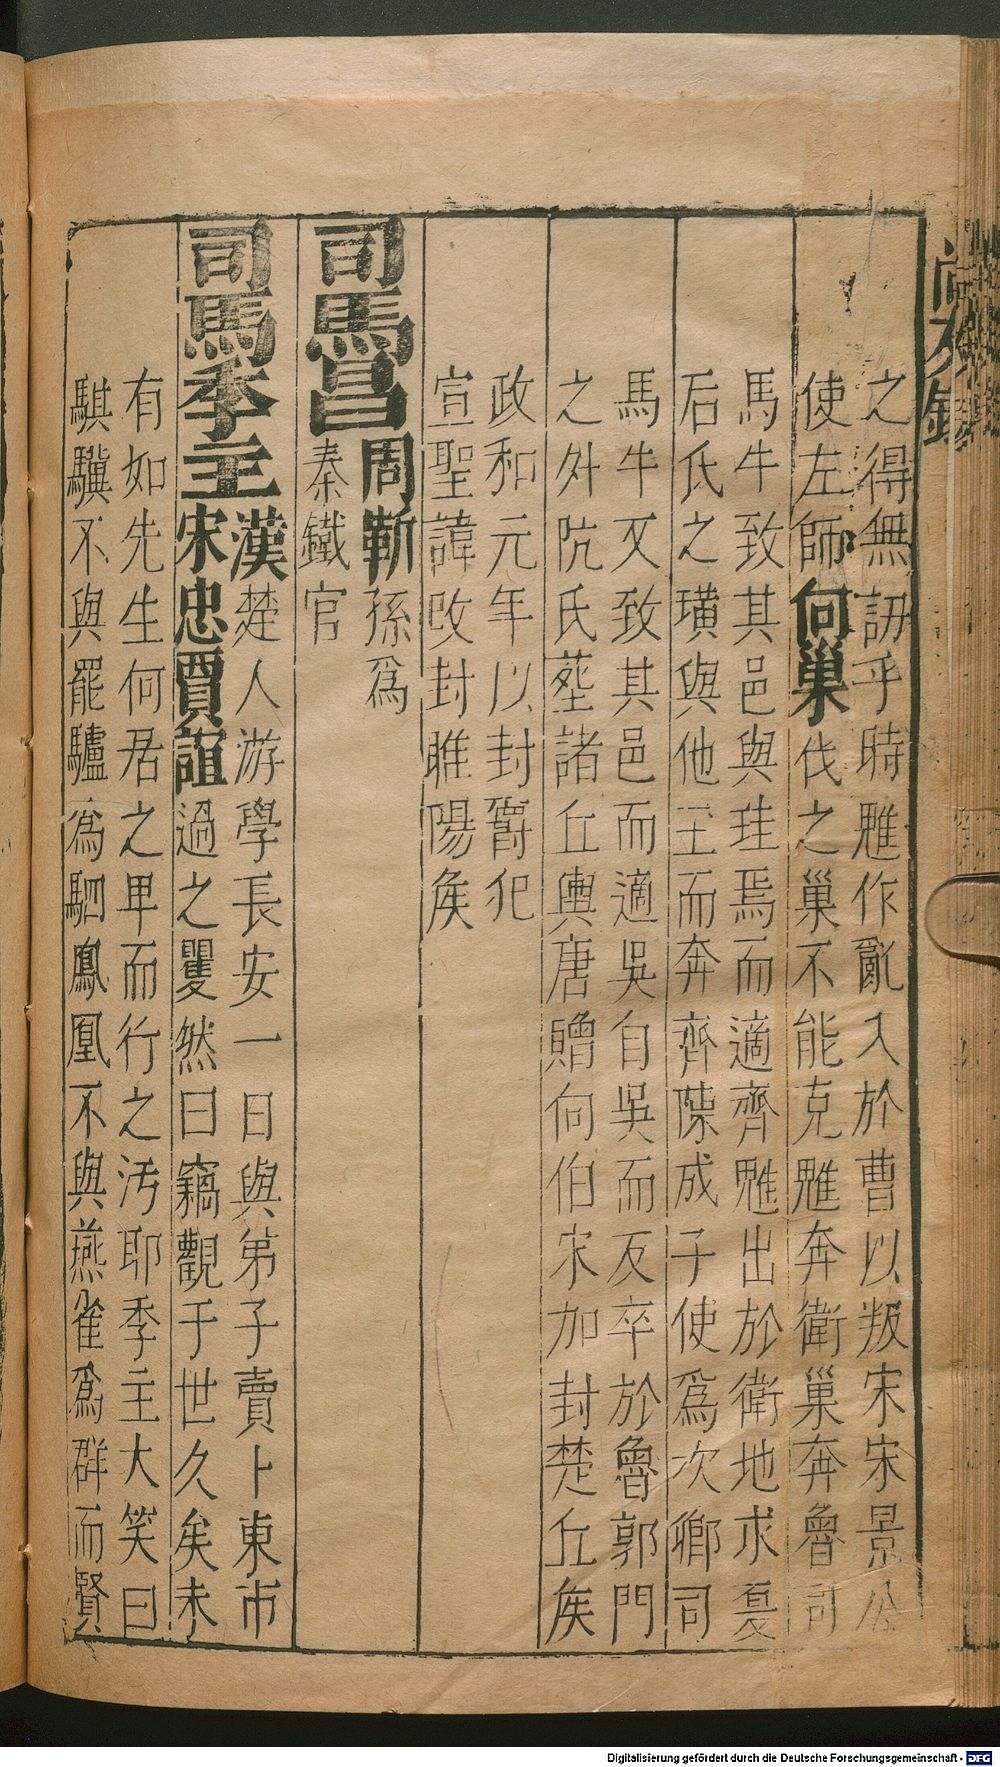 之得無訒乎時魋作亂入於曹以叛宋宋景公
使左師向巢伐之巢不能克魋奔衛巢奔魯司
馬牛致其邑與珪焉而適齊魋出於衛地求夏
后氏之璜與他玉而奔齊陳成子使爲次卿司
馬牛又致其邑而適吳自吳而反卒於魯郭門
之外阬氏塟諸丘輿唐贈向伯宋加封楚丘侯
政和元年以封爵犯
宣聖諱改封睢陽侯
司馬昌周靳孫爲
秦鐵官
司馬季主漢楚人游學長安一日與弟子賣卜東市
宋忠賈誼過之瞿然曰竊觀于世久矣未
有如先生何居之卑而行之汚耶季主大笑曰
騏驥不與罷驢爲駟鳳凰不與燕雀爲群而賢
Digitalisierung gefördert durch die Deutsche Forschungsgemeinschaft - DFG